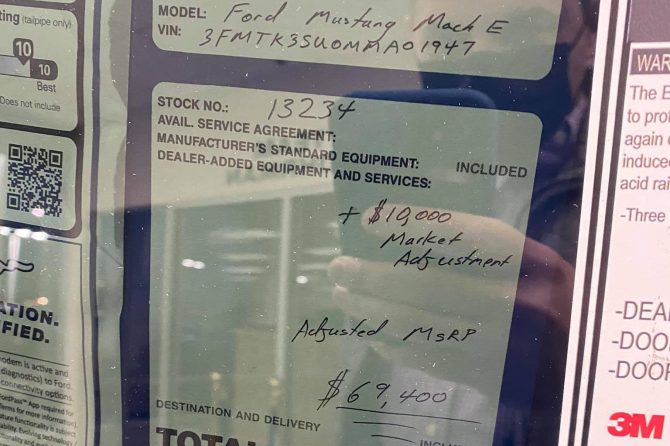 ting (tailpipe only)
10
10
Best
Does not include
ATION.
FIED.
modem is active and
diagnostics) to Ford.
connectivity options.
FordPass™ App required for
Terms for more information).
MODEL: Ford Mustang Mach E
VIN: 3FMTK3SU0MMA01947
STOCK NO.: 13234
AVAIL. SERVICE AGREEMENT:
MANUFACTURER'S STANDARD EQUIPMENT: INCLUDED
DEALER-ADDED EQUIPMENT AND SERVICES:
+ $10,000
Market
Adjustment
Adjusted MSRP
$69,400
DESTINATION AND DELIVERY
INCLU
TOTAL
WAR
The E
to prot
again
induced
acid rai
-Three
-DEA
-DOO
-DOOR
3M